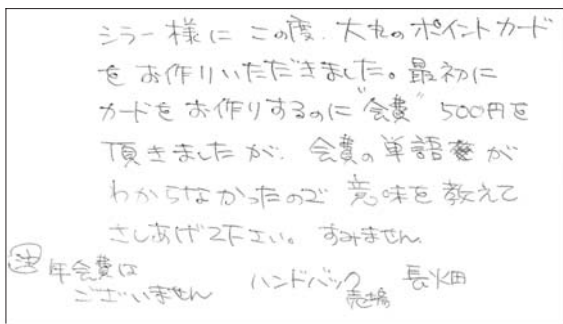 シラー様に この度、大丸のポイントカード
を お作りいただきました。最初に
カードを お作りするのに "会費" 500円を
頂きましたが、会費の単語が
わからなかったので 意味を教えて
さしあげて下さい。すみません
注 年会費は
ございません
ハンドバック
売場 長畑